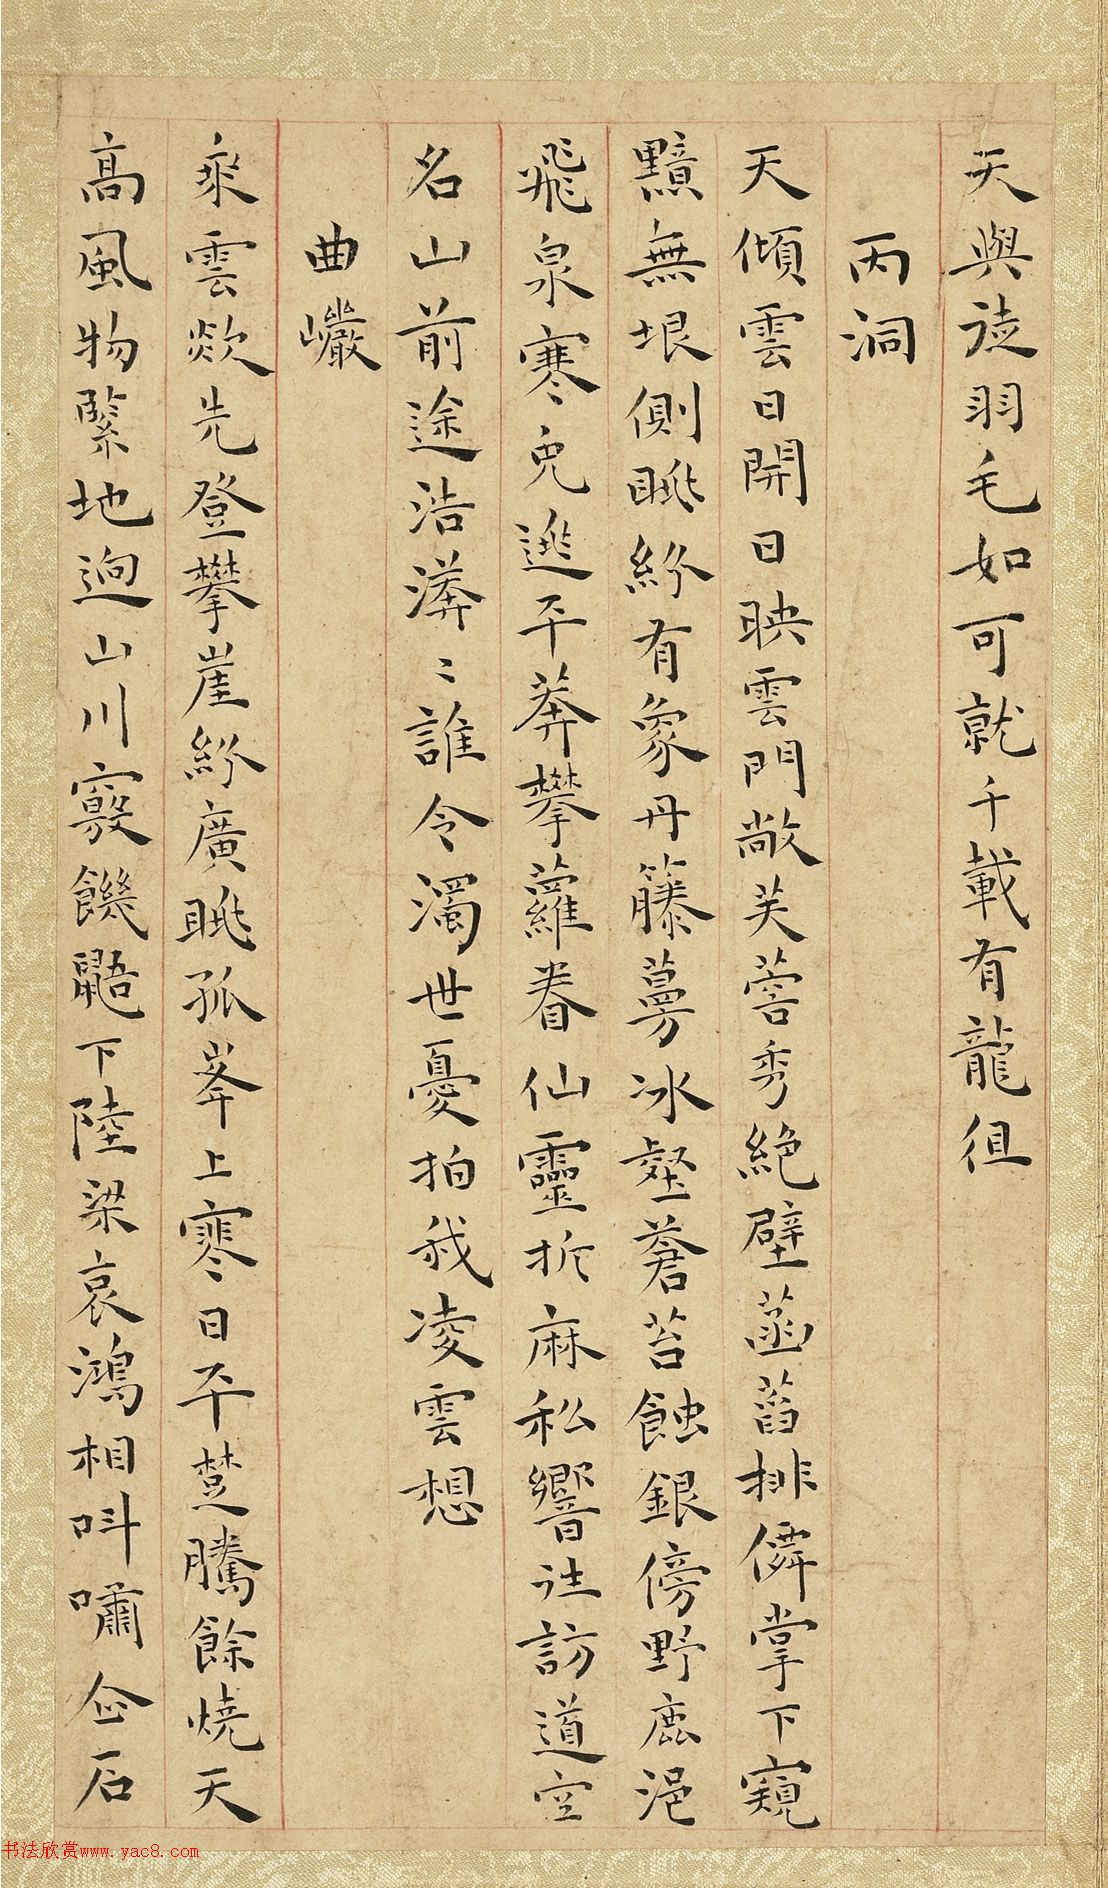 天與徒羽毛如可就千載有龍徂
丙洞
天傾雲日開日映雲門敞芙蓉秀絕壁菡萏排僊掌下窺
黯無垠側眺紛有象丹籐蔓冰壑蒼苔蝕銀傍野鹿浥
飛泉寒兔逃平莽攀蘿眷仙靈折麻私響往訪道空
名山前途浩漭〻誰令濁世憂拍我凌雲想
曲巖
乘雲欻先登攀崖紛廣眺孤峯上寒日平楚騰餘燒天
高風物緊地迥山川竅饑鼯下陸梁哀鴻相叫嘯企石
书法欣赏www.yac8.com